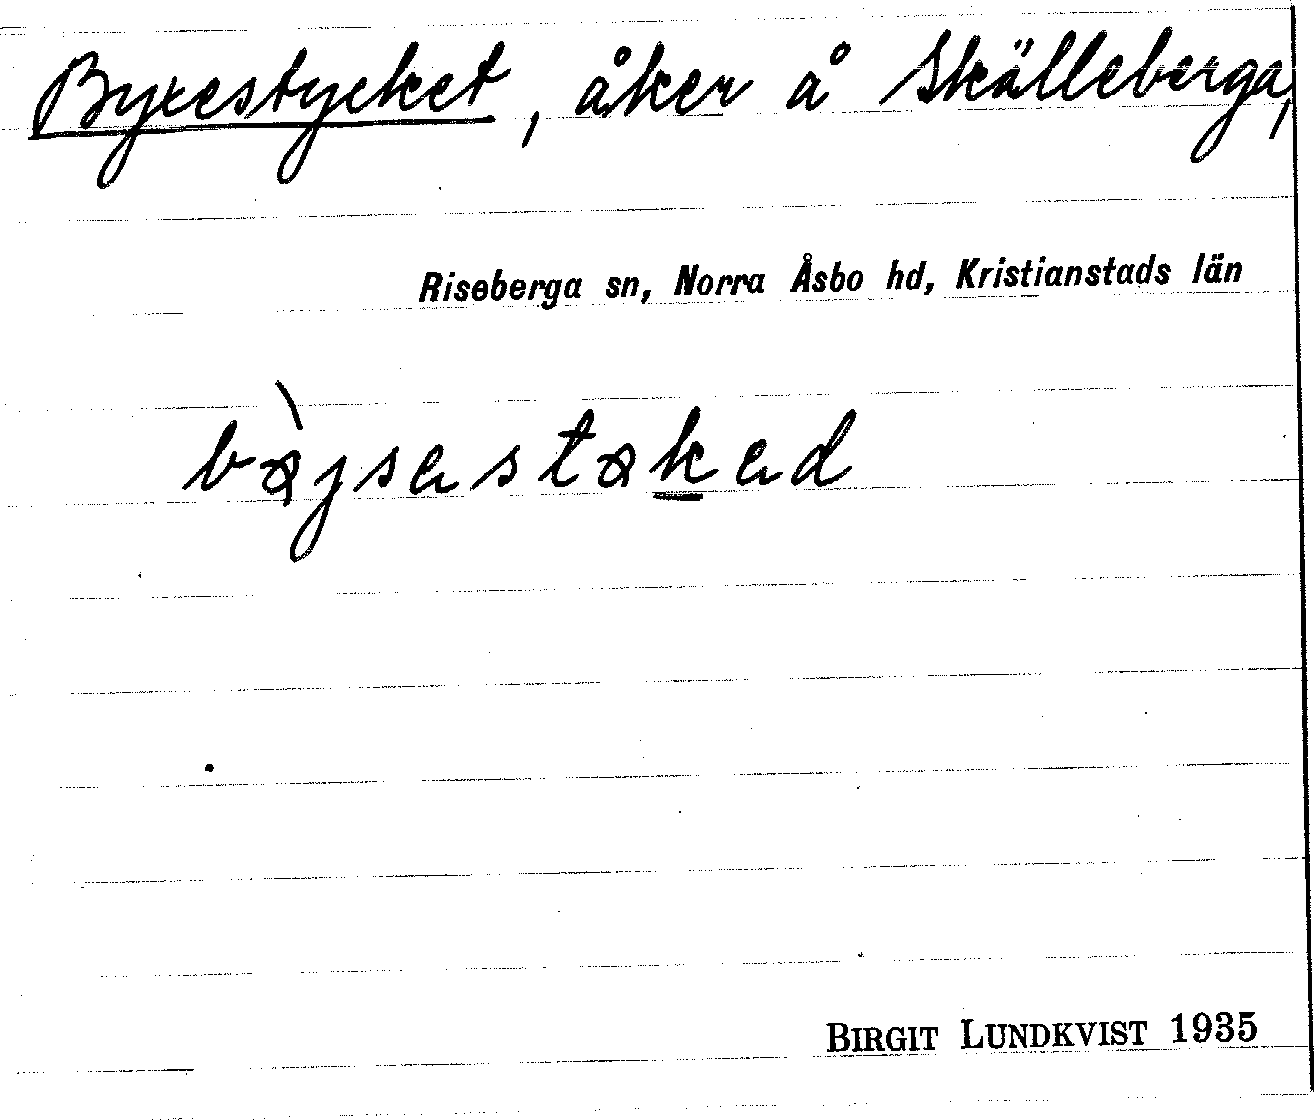 Byxestycket, åker å Skälleberga,
Riseberga sn, Norra Åsbo hd, Kristianstads län
BIRGIT LUNDKVIST 1935